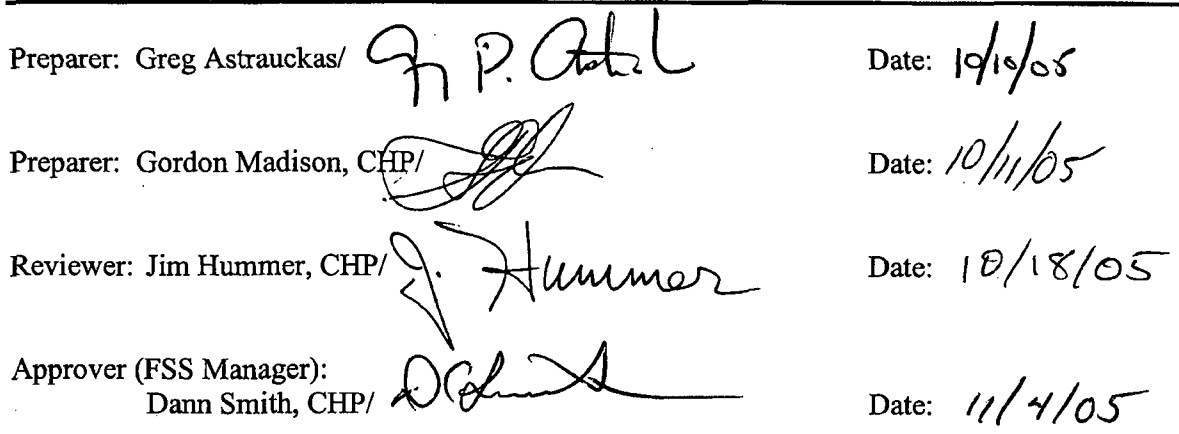 Preparer: Greg Astrauckas/ Date: 10/10/05
Preparer: Gordon Madison, CHP/ Date: 10/11/05
Reviewer: Jim Hummer, CHP/ J. Hummer Date: 10/18/05
Approver (FSS Manager):
Dann Smith, CHP/ Date: 11/4/05